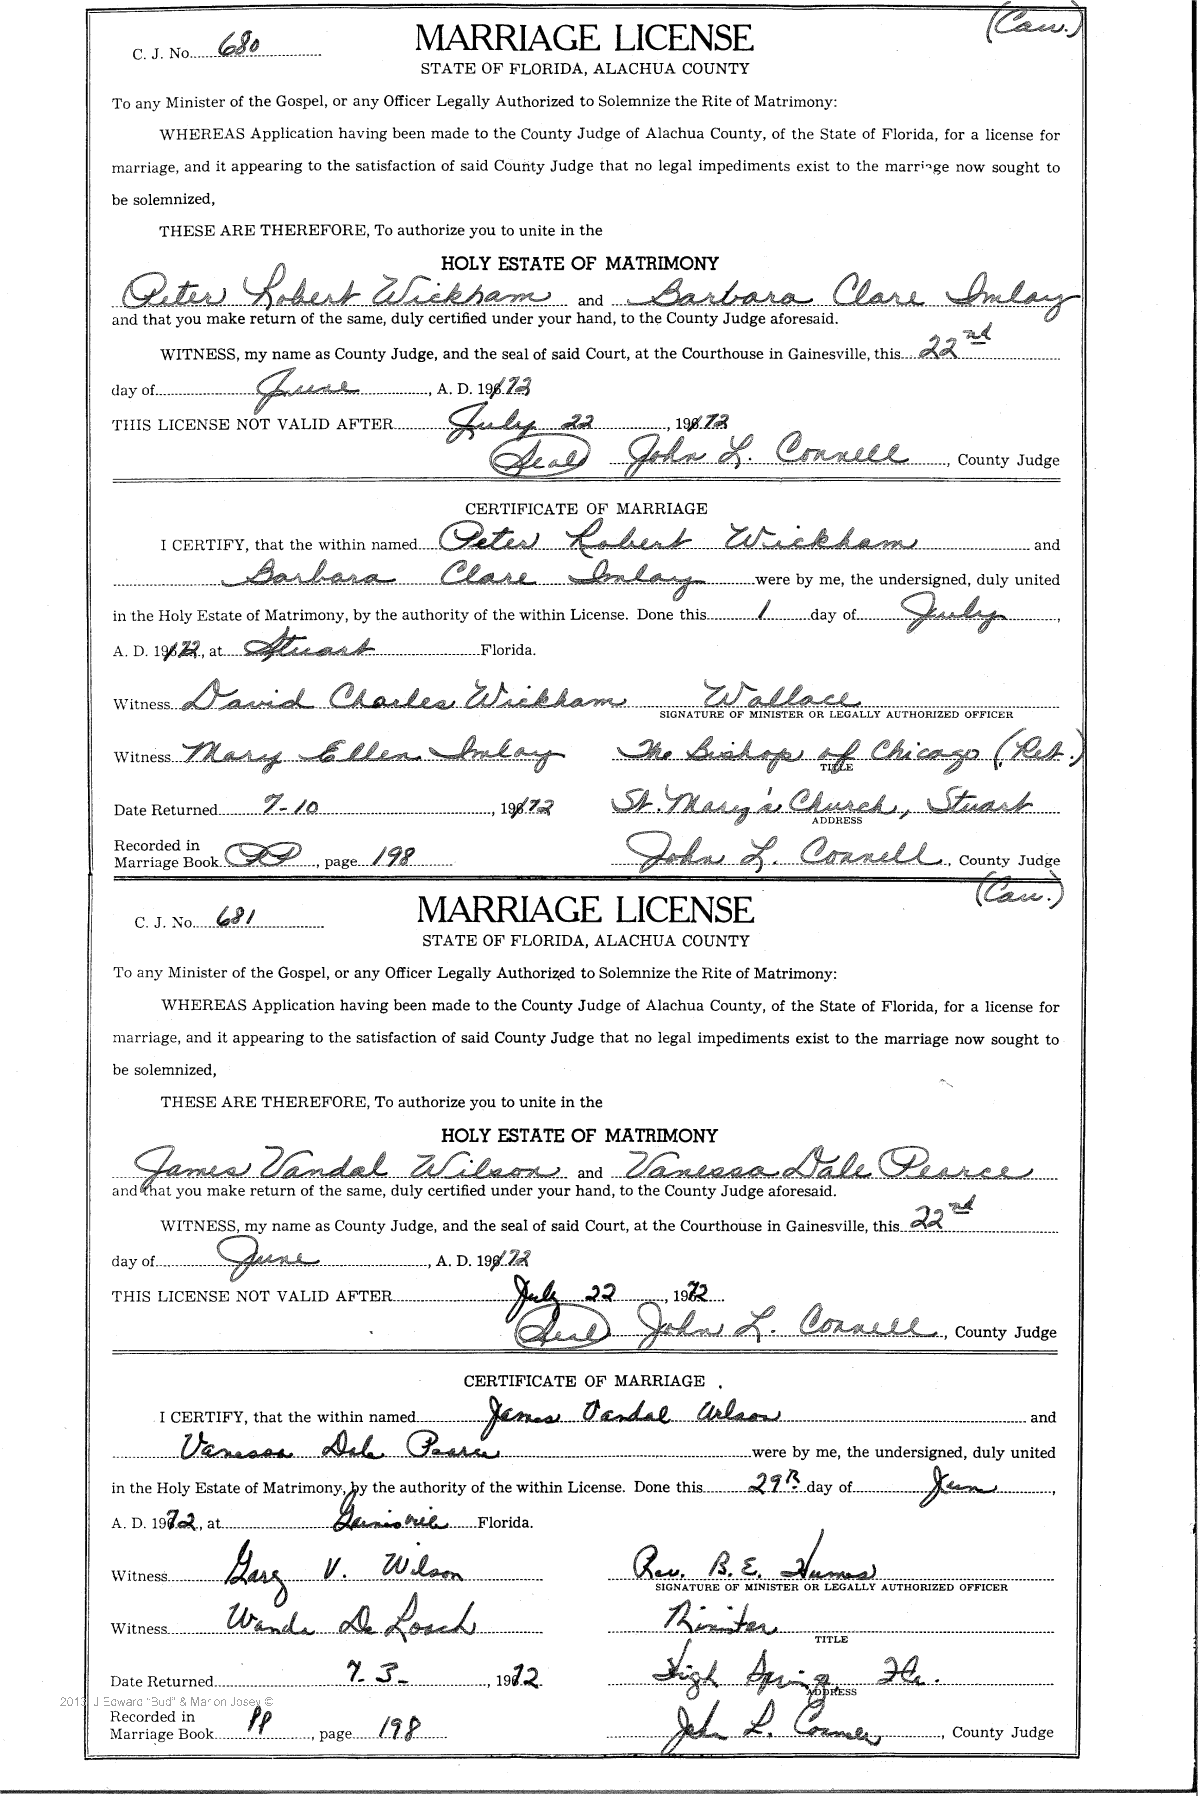 (Cau.)
C. J. No. 680
MARRIAGE LICENSE
STATE OF FLORIDA, ALACHUA COUNTY
To any Minister of the Gospel, or any Officer Legally Authorized to Solemnize the Rite of Matrimony:
WHEREAS Application having been made to the County Judge of Alachua County, of the State of Florida, for a license for
marriage, and it appearing to the satisfaction of said County Judge that no legal impediments exist to the marriage now sought to
be solemnized,
THESE ARE THEREFORE, To authorize you to unite in the
HOLY ESTATE OF MATRIMONY
Peter Robert Wickham and Barbara Clare Imlay
and that you make return of the same, duly certified under your hand, to the County Judge aforesaid.
WITNESS, my name as County Judge, and the seal of said Court, at the Courthouse in Gainesville, this 22nd
day of June, A. D. 1972
THIS LICENSE NOT VALID AFTER July 22, 1972
(Seal) John L. Connell, County Judge
CERTIFICATE OF MARRIAGE
I CERTIFY, that the within named Peter Robert Wickham and
Barbara Clare Imlay were by me, the undersigned, duly united
in the Holy Estate of Matrimony, by the authority of the within License. Done this 1 day of July,
A. D. 1972, at Stuart Florida.
Witness David Charles Wickham Wallace
SIGNATURE OF MINISTER OR LEGALLY AUTHORIZED OFFICER
Witness Mary Ellen Imlay The Bishop of Chicago (Ret.)
TITLE
Date Returned 7-10, 1972 St. Mary's Church, Stuart
ADDRESS
Recorded in
Marriage Book PP, page 198 John L. Connell, County Judge
(Cau.)
C. J. No. 681
MARRIAGE LICENSE
STATE OF FLORIDA, ALACHUA COUNTY
To any Minister of the Gospel, or any Officer Legally Authorized to Solemnize the Rite of Matrimony:
WHEREAS Application having been made to the County Judge of Alachua County, of the State of Florida, for a license for
marriage, and it appearing to the satisfaction of said County Judge that no legal impediments exist to the marriage now sought to
be solemnized,
THESE ARE THEREFORE, To authorize you to unite in the
HOLY ESTATE OF MATRIMONY
James Vandal Wilson and Vanessa Dale Pearce
and that you make return of the same, duly certified under your hand, to the County Judge aforesaid.
WITNESS, my name as County Judge, and the seal of said Court, at the Courthouse in Gainesville, this 22nd
day of June, A. D. 1972
THIS LICENSE NOT VALID AFTER July 22, 1972
(Seal) John L. Connell, County Judge
CERTIFICATE OF MARRIAGE
I CERTIFY, that the within named James Vandal Wilson and
Vanessa Dale Pearce were by me, the undersigned, duly united
in the Holy Estate of Matrimony, by the authority of the within License. Done this 29th day of Jun,
A. D. 1972, at Gainesville Florida.
Witness Gary V. Wilson Rev. B. E. Humes
SIGNATURE OF MINISTER OR LEGALLY AUTHORIZED OFFICER
Witness Wanda De Loach Minister
TITLE
Date Returned 7-3-, 1972 High Springs Fla.
ADDRESS
2013, J Edward "Bud" & Marion Josey ©
Recorded in
Marriage Book PP, page 198 John L. Connell, County Judge